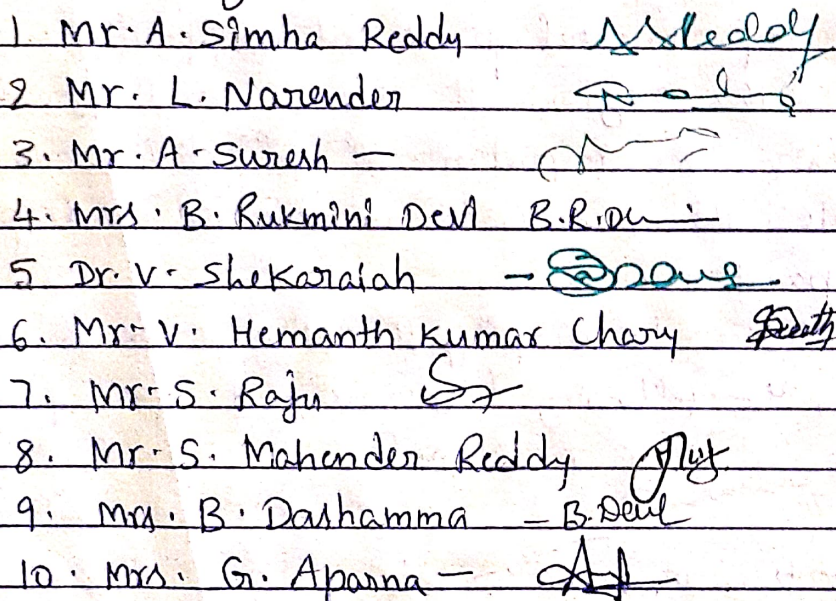 1 Mr. A. Simha Reddy
2 Mr. L. Narender
3. Mr. A. Suresh —
4. Mrs. B. Rukmini Devi B.R.
5 Dr. V. Shekaraiah -
6. Mr. V. Hemanth Kumar Chary
7. Mr. S. Raju
8. Mr. S. Mahender Reddy
9. Mrs. B. Dashamma - B.
10. Mrs. G. Aparna -